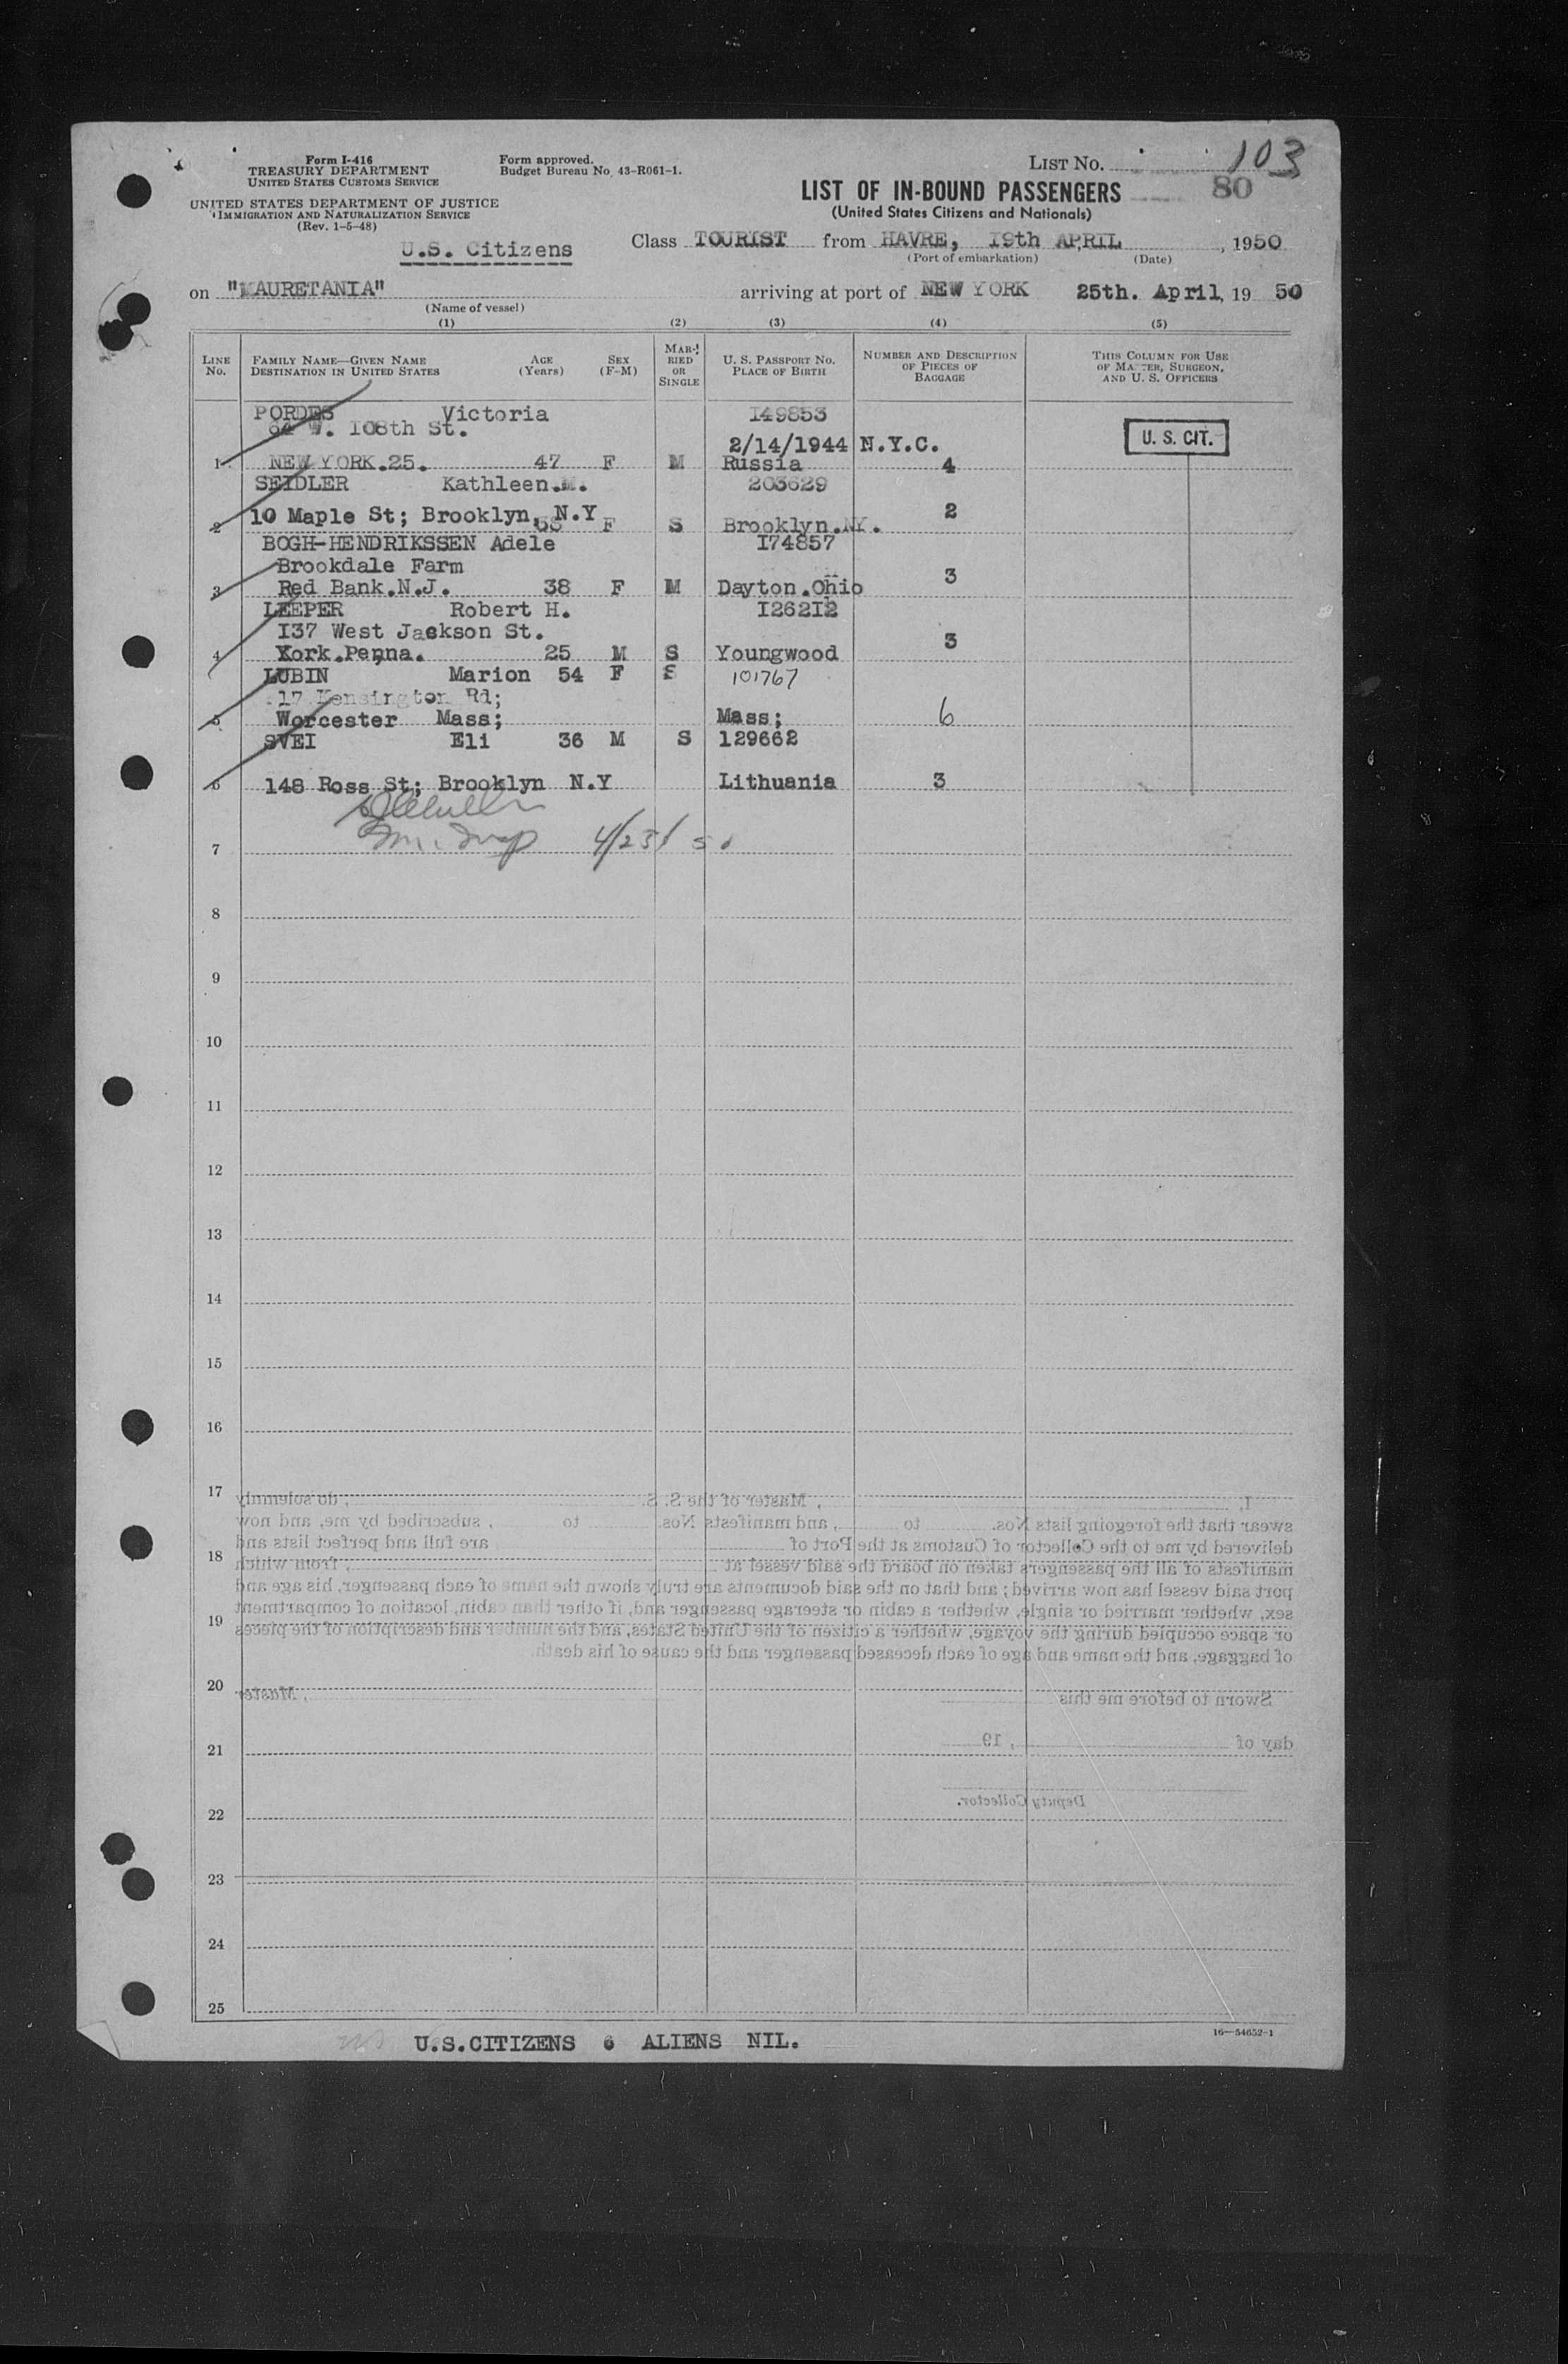 Form I-416
TREASURY DEPARTMENT
UNITED STATES CUSTOMS SERVICE
UNITED STATES DEPARTMENT OF JUSTICE
IMMIGRATION AND NATURALIZATION SERVICE
(Rev. 1-5-48)
Form approved.
Budget Bureau No. 43-R061-1.
LIST NO. 103
80
LIST OF IN-BOUND PASSENGERS
(United States Citizens and Nationals)
U.S. Citizens
Class TOURIST from HAVRE, 19th APRIL, 1950
(Port of embarkation) (Date)
on "MAURETANIA" arriving at port of NEW YORK 25th. April, 19 50
(Name of vessel)
(1) (2) (3) (4) (5)
LINE No. FAMILY NAME—GIVEN NAME DESTINATION IN UNITED STATES AGE (Years) SEX (F-M) MARRIED OR SINGLE U. S. PASSPORT NO. PLACE OF BIRTH NUMBER AND DESCRIPTION OF PIECES OF BAGGAGE THIS COLUMN FOR USE OF MASTER, SURGEON, AND U. S. OFFICERS
PORDES Victoria I49853
W. I08th St.
2/14/1944 N.Y.C. U. S. CIT.
1 NEW YORK.25. 47 F M Russia 4
SEIDLER Kathleen.M. 203629
2 10 Maple St; Brooklyn, N.Y F S Brooklyn.NY. 2
BOGH-HENDRIKSSEN Adele I74857
Brookdale Farm
3 Red Bank.N.J. 38 F M Dayton.Ohio 3
LEEPER Robert H. I262I2
I37 West Jackson St.
4 York.Penna. 25 M S Youngwood 3
LUBIN Marion 54 F S 101767
17 Kensington Rd;
5 Worcester Mass; Mass; 6
SVEI Eli 36 M S 129662
6 148 Ross St; Brooklyn N.Y Lithuania 3
7
8
9
10
11
12
13
14
15
16
17
18
19
20
21
22
23
24
25
I, , Master of the S. S. , do solemnly
swear that the foregoing lists Nos. to , and manifests Nos. to , subscribed by me, and now
delivered by me to the Collector of Customs at the Port of are full and perfect lists and
manifests of all the passengers taken on board the said vessel at , from which
port said vessel has now arrived; and that on the said documents are truly shown the name of each passenger, his age and
sex, whether married or single, whether a cabin or steerage passenger and, if other than cabin, location of compartment
or space occupied during the voyage, whether a citizen of the United States, and the number and description of the pieces
of baggage, and the name and age of each deceased passenger and the cause of his death.
, Master
Sworn to before me this
day of , 19
Deputy Collector.
16—54652-1
U.S.CITIZENS 6 ALIENS NIL.